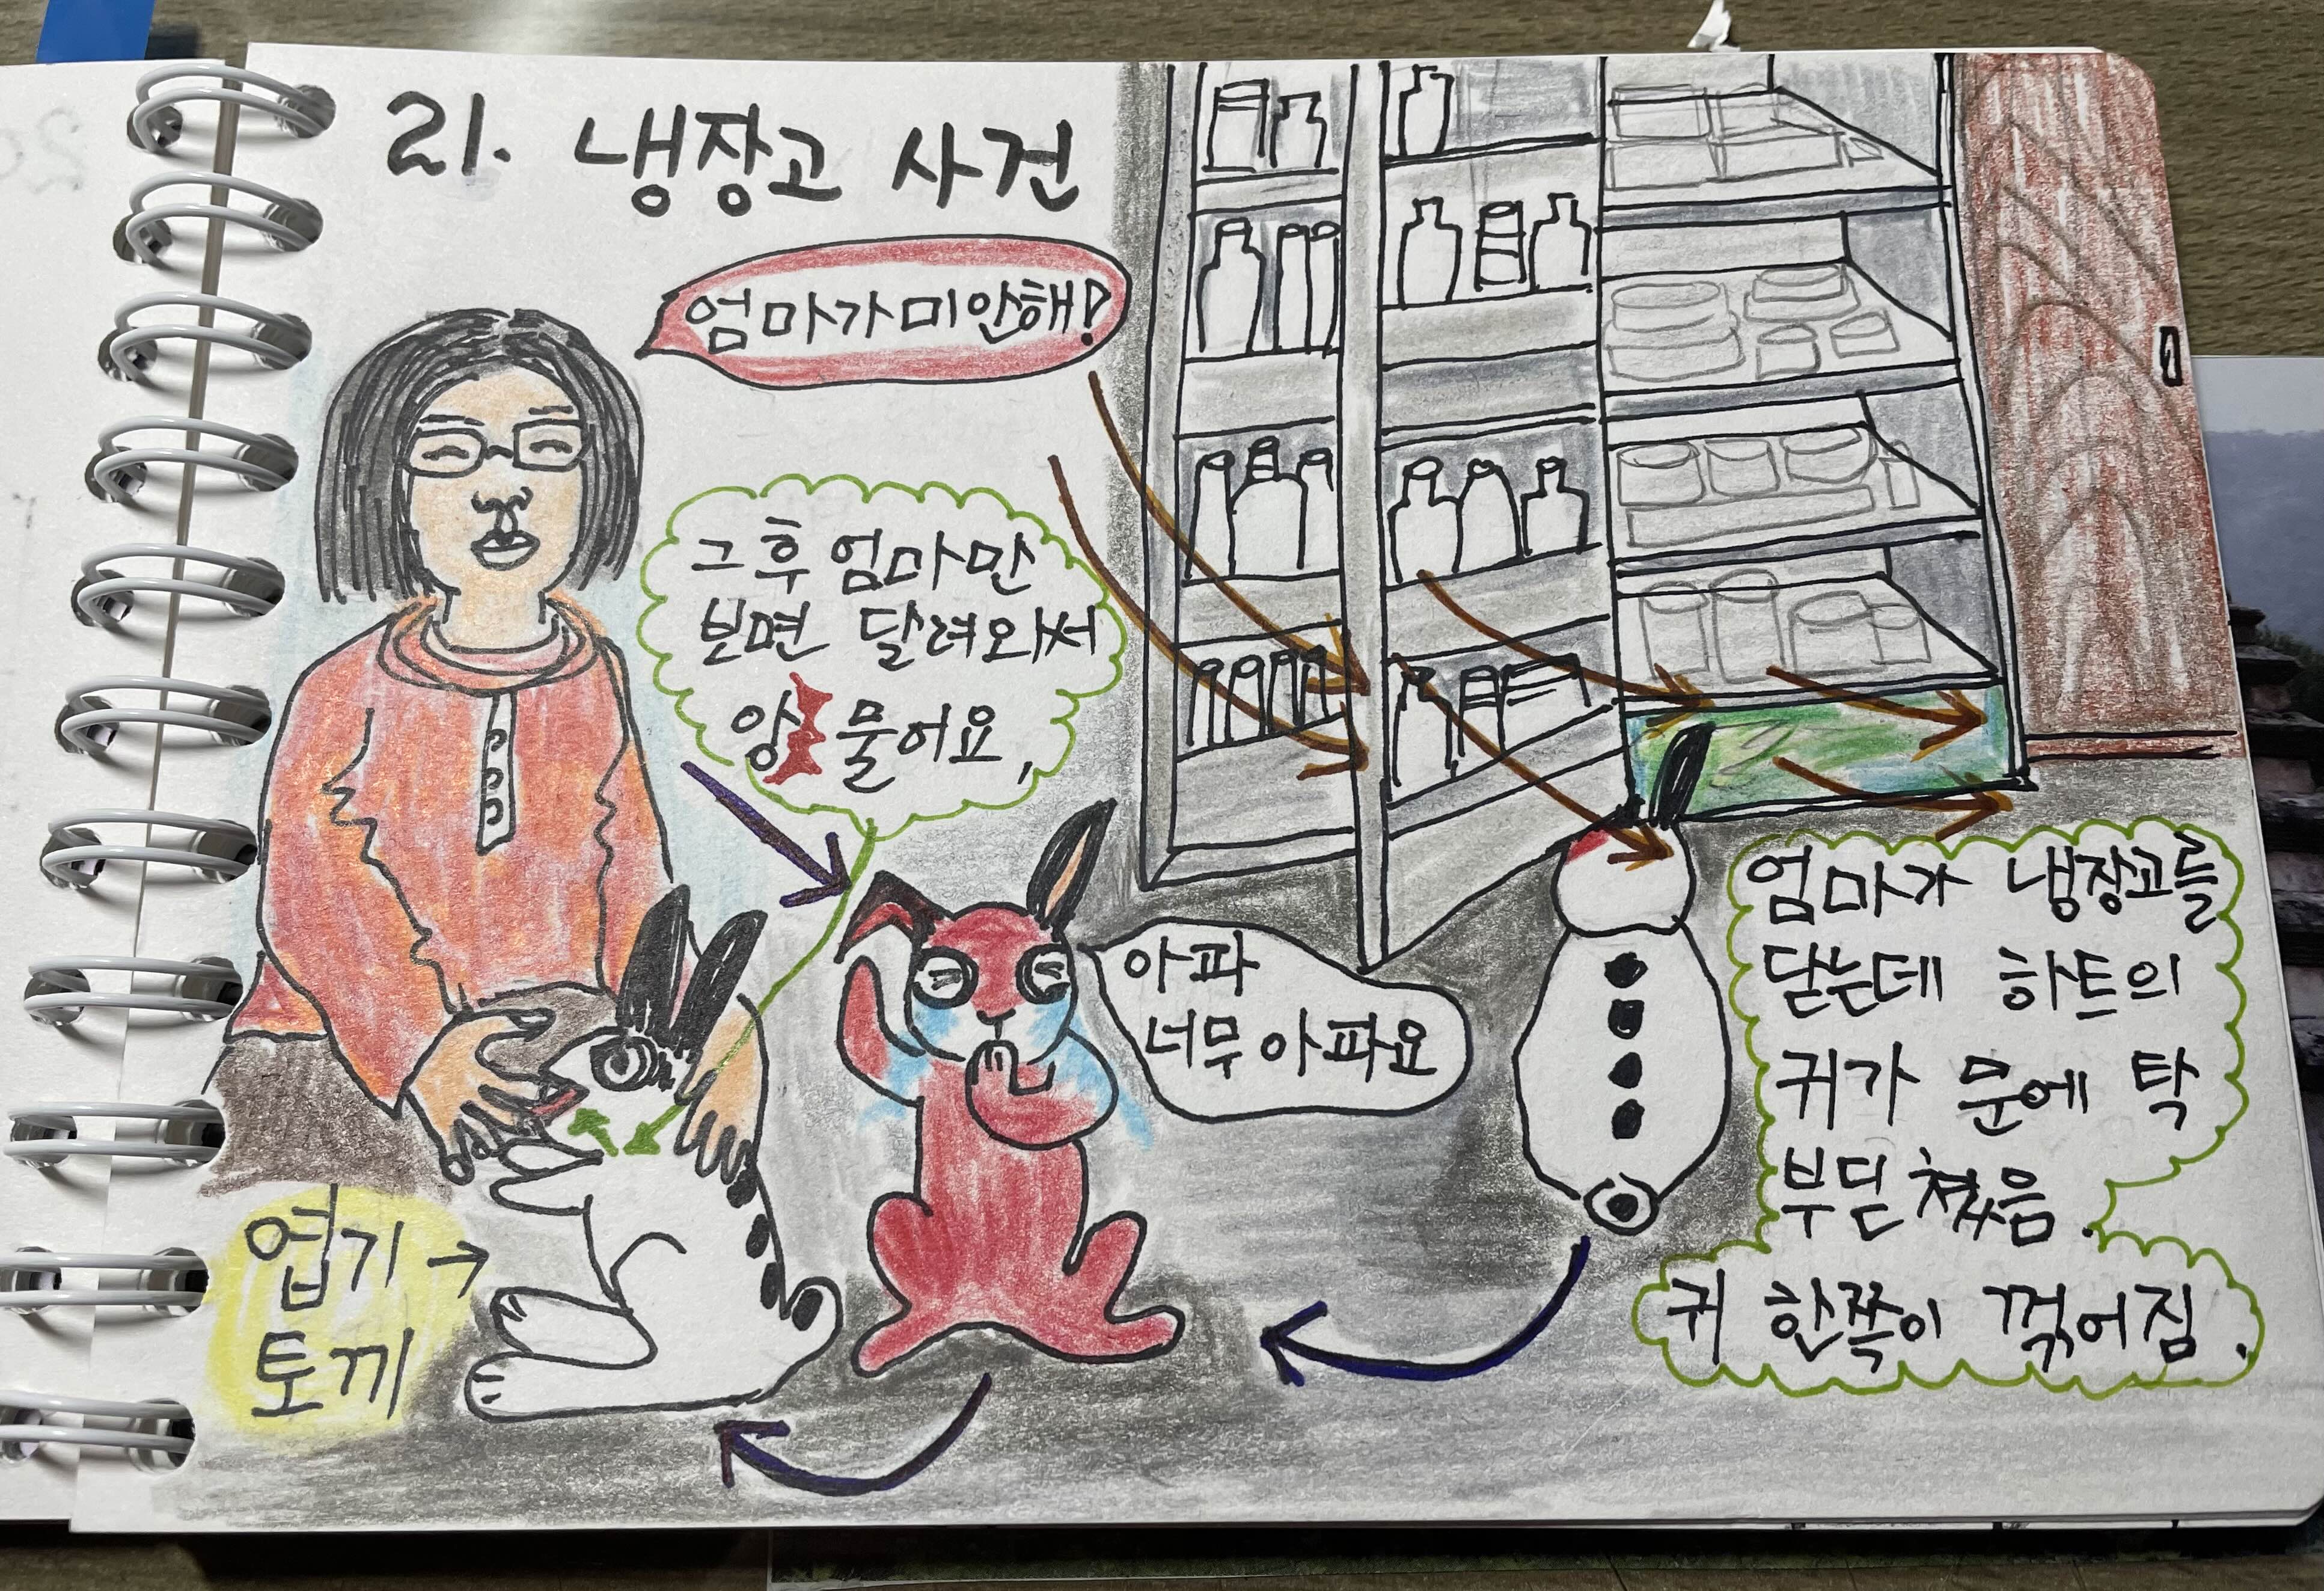 21. 냉장고 사건
엄마가미안해!
그후 엄마만
보면 달려와서
앙 물어요,
아파
너무 아파요
엄마가 냉장고를
닫는데 하트의
귀가 문에 탁
부딛쳤음.
귀 한쪽이 꺾어짐.
엽기→
토끼